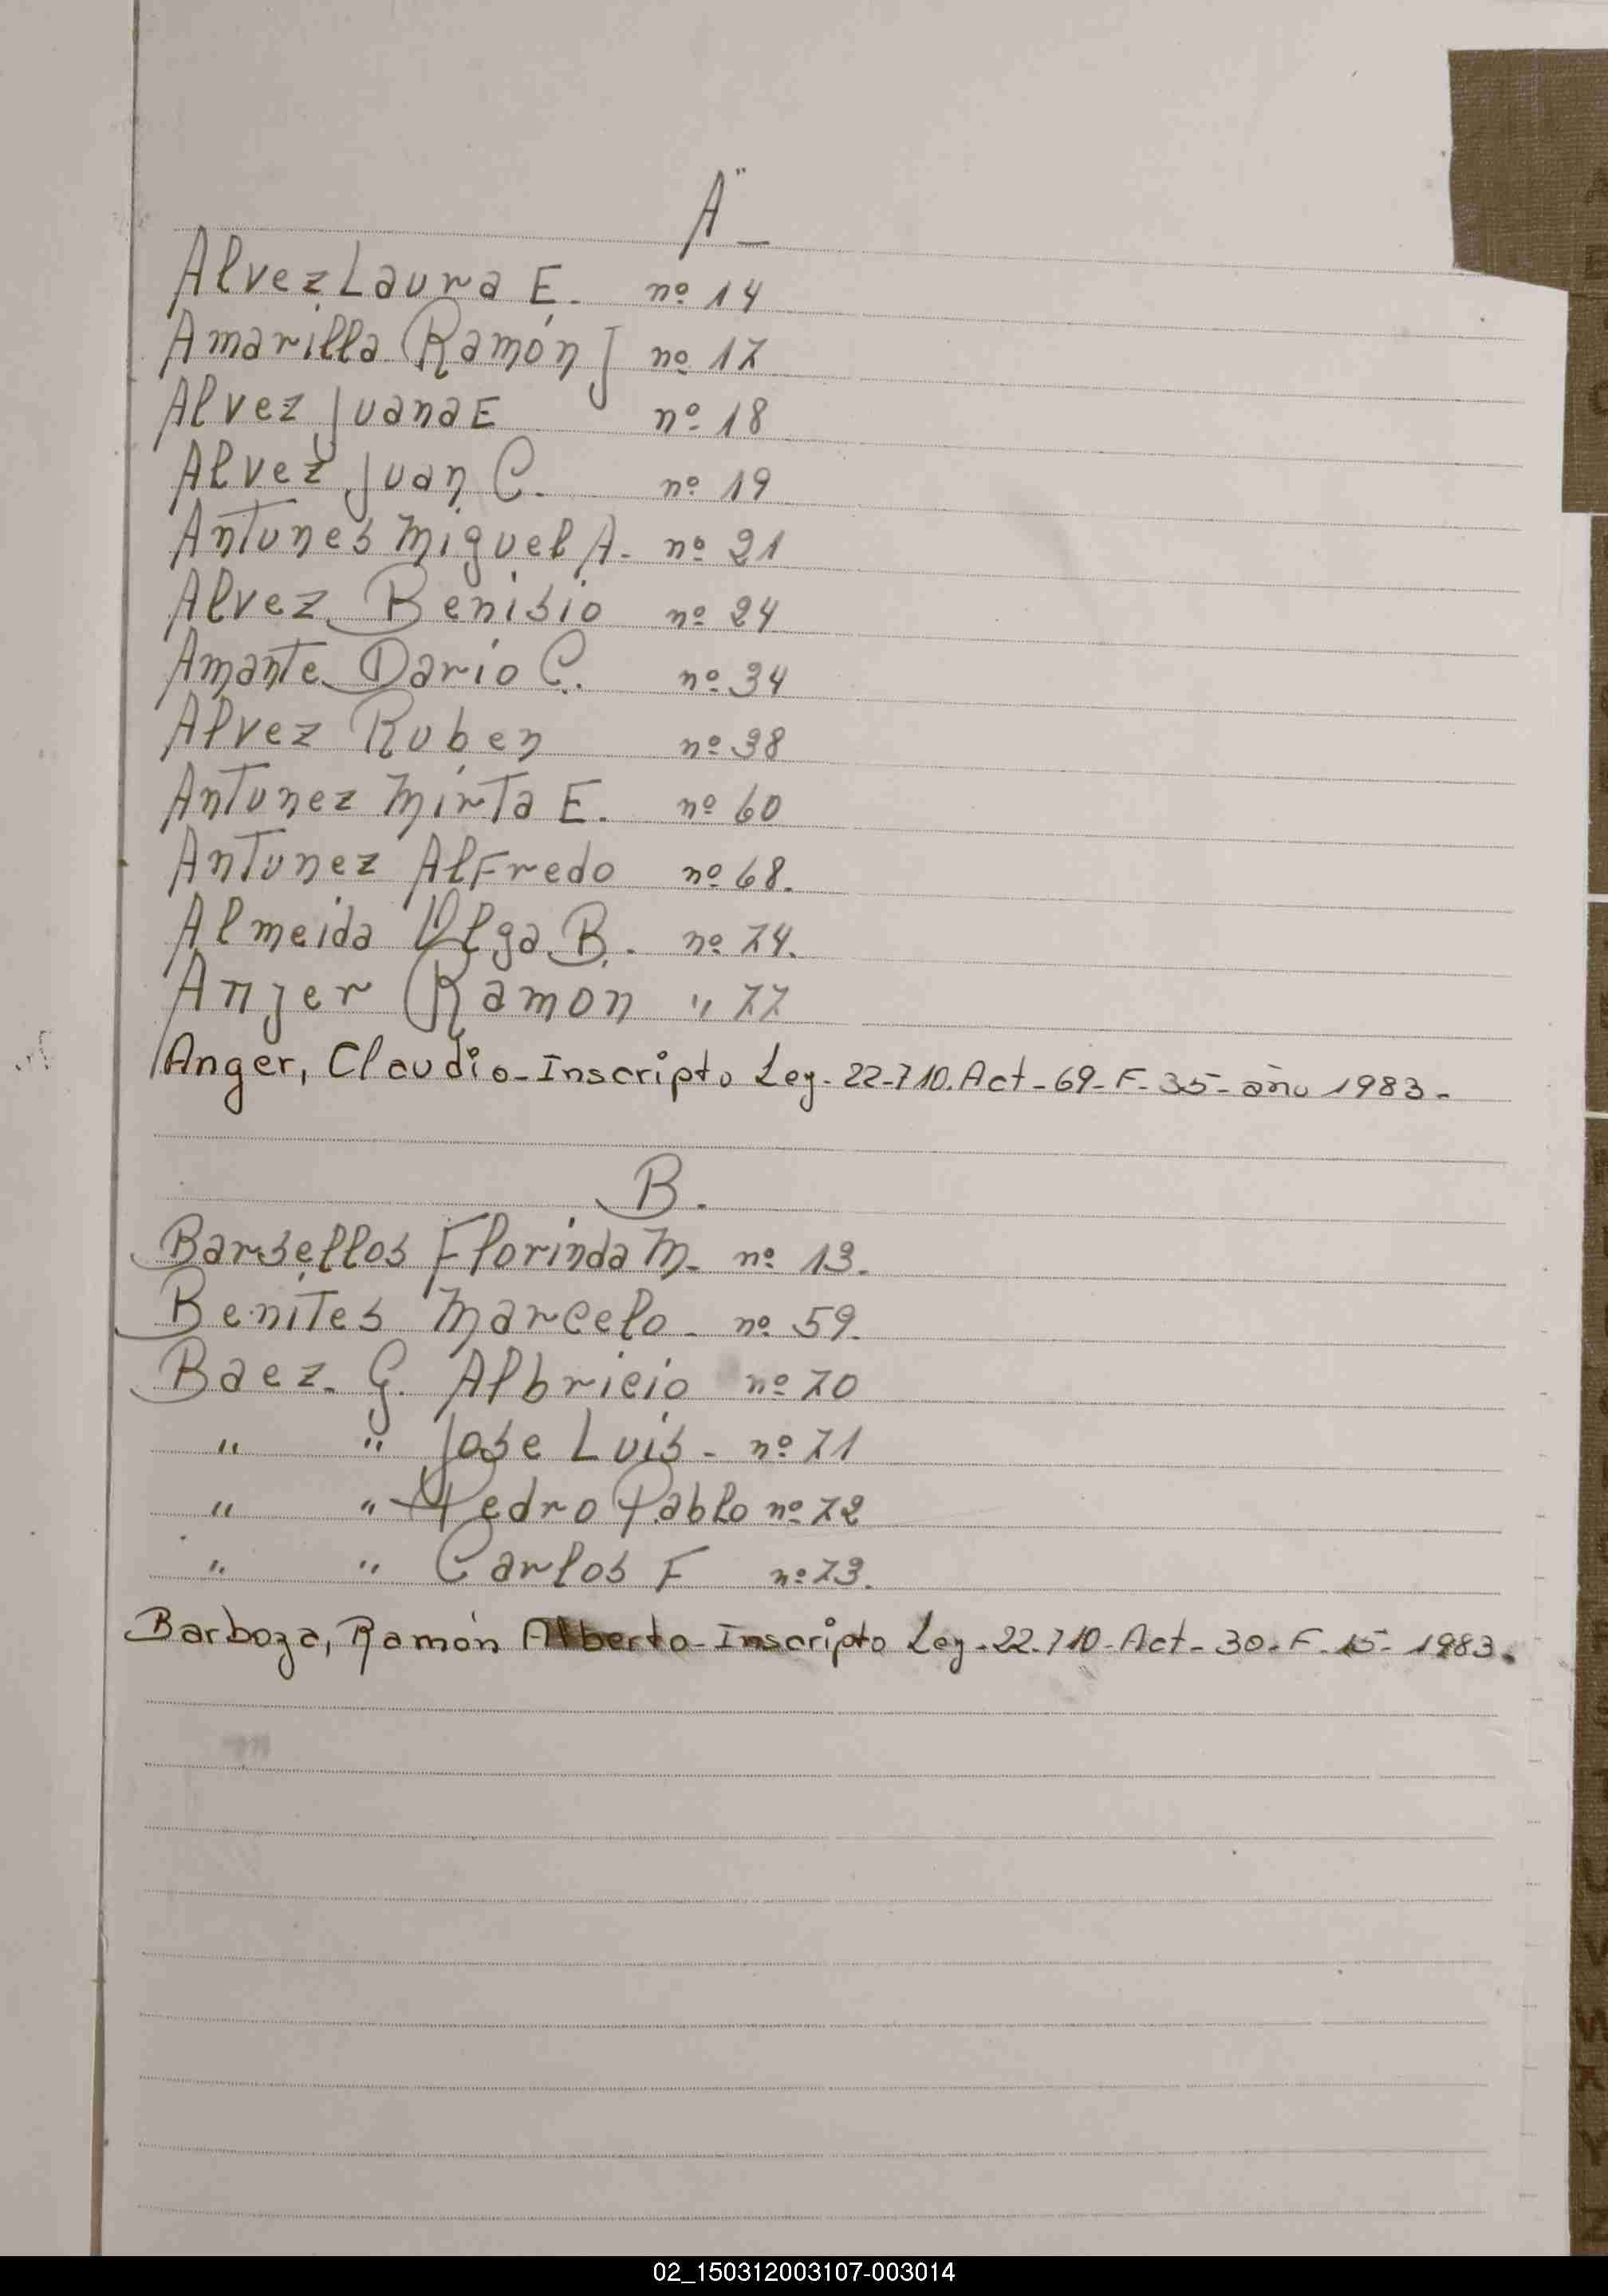 A"-
Alvez Laura E. nº 14
Amarilla Ramón J nº 17
Alvez Juana E nº 18
Alvez Juan C. nº 19
Antunes Miguel A. nº 21
Alvez Benisio nº 24
Amante Dario C. nº 34
Alvez Ruben nº 38
Antunez Mirta E. nº 60
Antunez Alfredo nº 68.
Almeida Olga B. nº 74.
Anjer Ramon " 77
Anger, Claudio-Inscripto Ley-22-710. Act-69-F-35-año 1983-
B.
Barsellos Florinda M. nº 13.
Benites Marcelo - nº 59.
Baez. G. Albricio nº 70
" " Jose Luis - nº 71
" " Pedro Pablo nº 72
" " Carlos F nº 73.
Barboza, Ramón Alberto-Inscripto Ley-22.710-Act-30-F-15-1983.
02_150312003107-003014